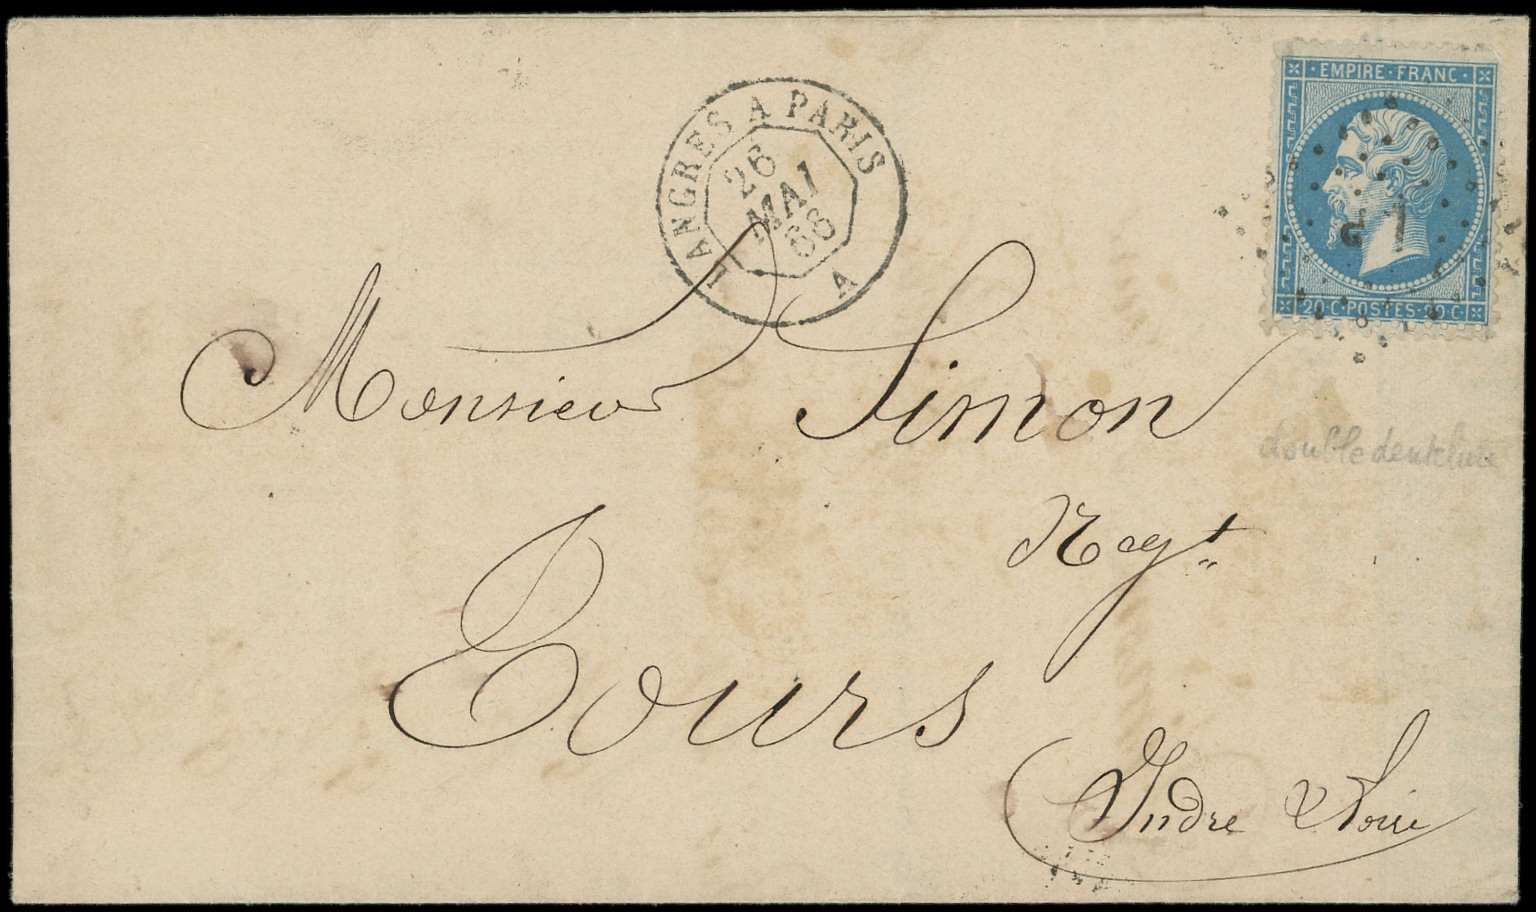 EMPIRE·FRANC·
LANGRES A PARIS
26
MAI
68
A
20·C·POSTES·20·C
Monsieur Simon
double dentelure
Negt
Tours
Indre & Loire